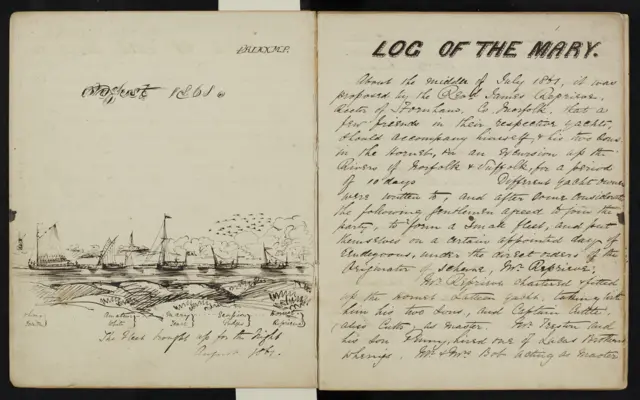 August 1861
Mary
The Fleet brought up for the Night
August 1861.
LOG OF THE MARY.
About the middle of July 1861, it was
proposed by the Revd James Reprieve,
Rector of Co Norfolk, that a
few friends in their respective yachts,
should accompany himself, & his two sons
in the Hornet, on an excursion up the
Rivers of Norfolk & Suffolk, for a period
of 10 days Different Yacht owners
were written to, and after some consideration
the following Gentlemen agreed to join the
party, to form a small fleet, and put
themselves on a certain appointed day of
rendezvous, under the direct orders of the
Originator of scheme, Mr Reprieve.
Mr Reprieve chartered & fitted
up the Hornet Lateen yacht, taking with
him his two sons, and Captain Cuttle,
(alias Cutts) as master. Mr Preston and
his son hired one of Brothers
wherrys. Mr & Mrs Bob acting as Master